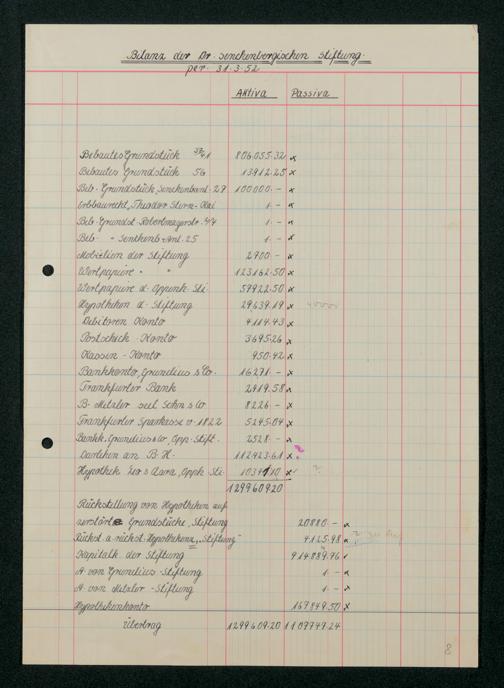 Bilanz der Dr. Senckenbergischen Stiftung.
per. 31.3.52
Aktiva Passiva
Bebautes Grundstück 806.055.32 x
Bebautes Grundstück 56 13912.25 x
Beb. Grundstück, Senckenbanl. 27 100000.- x
Erbbaurecht, Theodor Stern-Kai 1.- x
Beb. Grundst. Robertmayerstr. 1.- x
Beb. " Senckenb. Anl. 25 1.- x
Mobilien der Stiftung 2900.- x
Wertpapiere " " 123162.50 x
Wertpapiere d. Oppenh. Sti 57922.50 x
Hypotheken d. Stiftung 29639.19 x
Debitoren Konto 4114.43 x
Postscheck-Konto 3695.26 x
Kassen-Konto 950.42 x
Bankkonto, Grunelius & Co. 16271.- x
Frankfurter Bank 2419.58 x
B. Metzler seel. Sohn & Co 8226.- x
Frankfurter Sparkasse v. 1822 5245.04 x
Bankk. Grunelius & Co, Opp. Stift. 2528.- x
Darlehen an B. H. 112423.61 x
Hypothek Leo & Clara, Opph. Sti. x
1299609.20
Rückstellung von Hypotheken auf
zerstörte Grundstücke, Stiftung 20880.- x
Rückst. a. rückst. Hypothekenz., "Stiftung" 4125.98 x
Kapitalk. der Stiftung 914889.76
A. von Grunelius-Stiftung 1.- x
A. von Metzler-Stiftung 1.-
Hypothekenkonto 167849.50 x
Übertrag 1299609.20 1107747.24
8